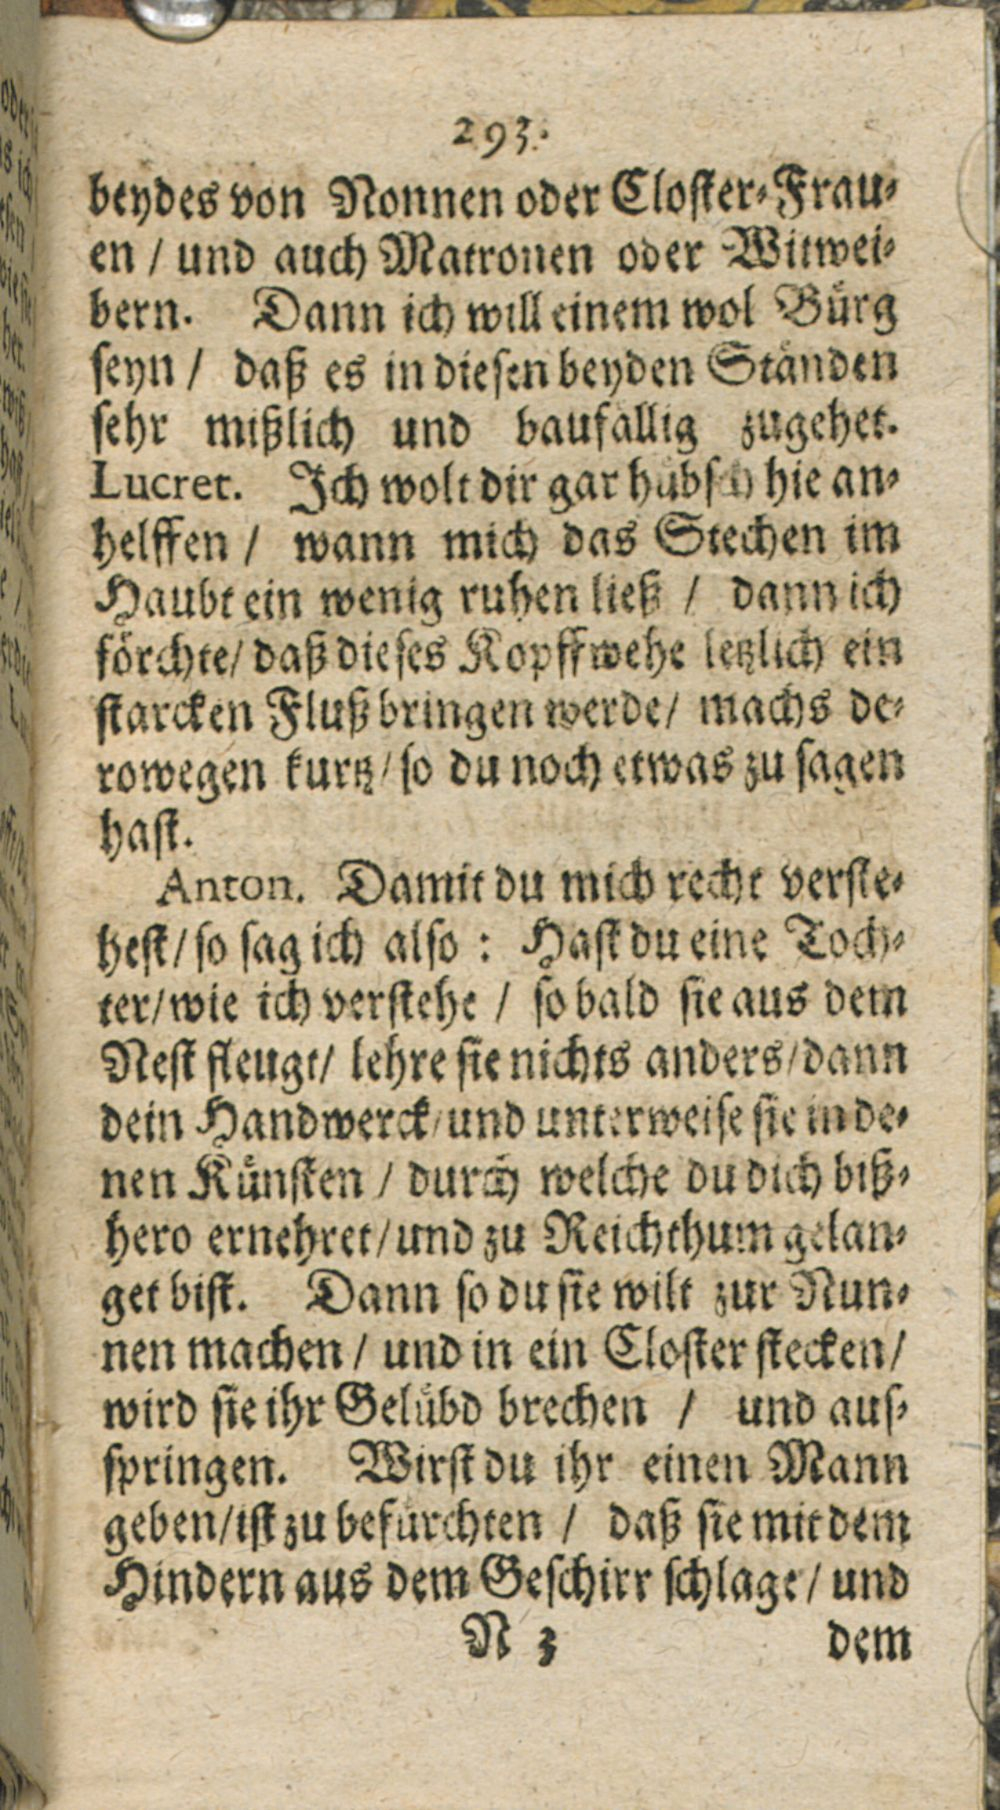 293.
beydes von Nonnen oder Closter-Frau-
en / und auch Matronen oder Witwei-
bern. Dann ich will einem wol Bürg
seyn / daß es in diesen beyden Ständen
sehr mißlich und baufällig zugehet.
Lucret. Ich wolt dir gar hübsch hie an-
helffen / wann mich das Stechen im
Haubt ein wenig ruhen ließ / dann ich
förchte/ daß dieses Kopffwehe letzlich ein
starcken Fluß bringen werde/ machs de-
rowegen kurtz/ so du noch etwas zu sagen
hast.
Anton. Damit du mich recht verste-
hest/ so sag ich also : Hast du eine Toch-
ter/ wie ich verstehe / so bald sie aus dem
Nest fleugt/ lehre sie nichts anders/ dann
dein Handwerck/ und unterweise sie in de-
nen Künsten / durch welche du dich biß-
hero ernehret/ und zu Reichthum gelan-
get bist. Dann so du sie wilt zur Nun-
nen machen / und in ein Closter stecken/
wird sie ihr Gelübd brechen / und aus-
springen. Wirst du ihr einen Mann
geben/ ist zu befürchten / daß sie mit dem
Hindern aus dem Geschirr schlage/ und
N 3 dem